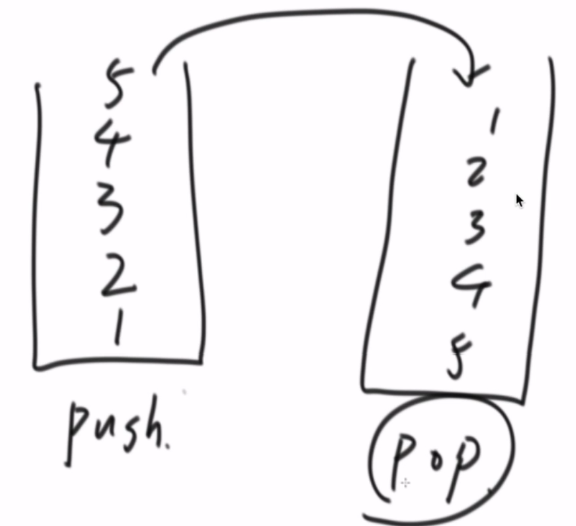 5
4
3
2
1
push.
1
2
3
4
5
pop